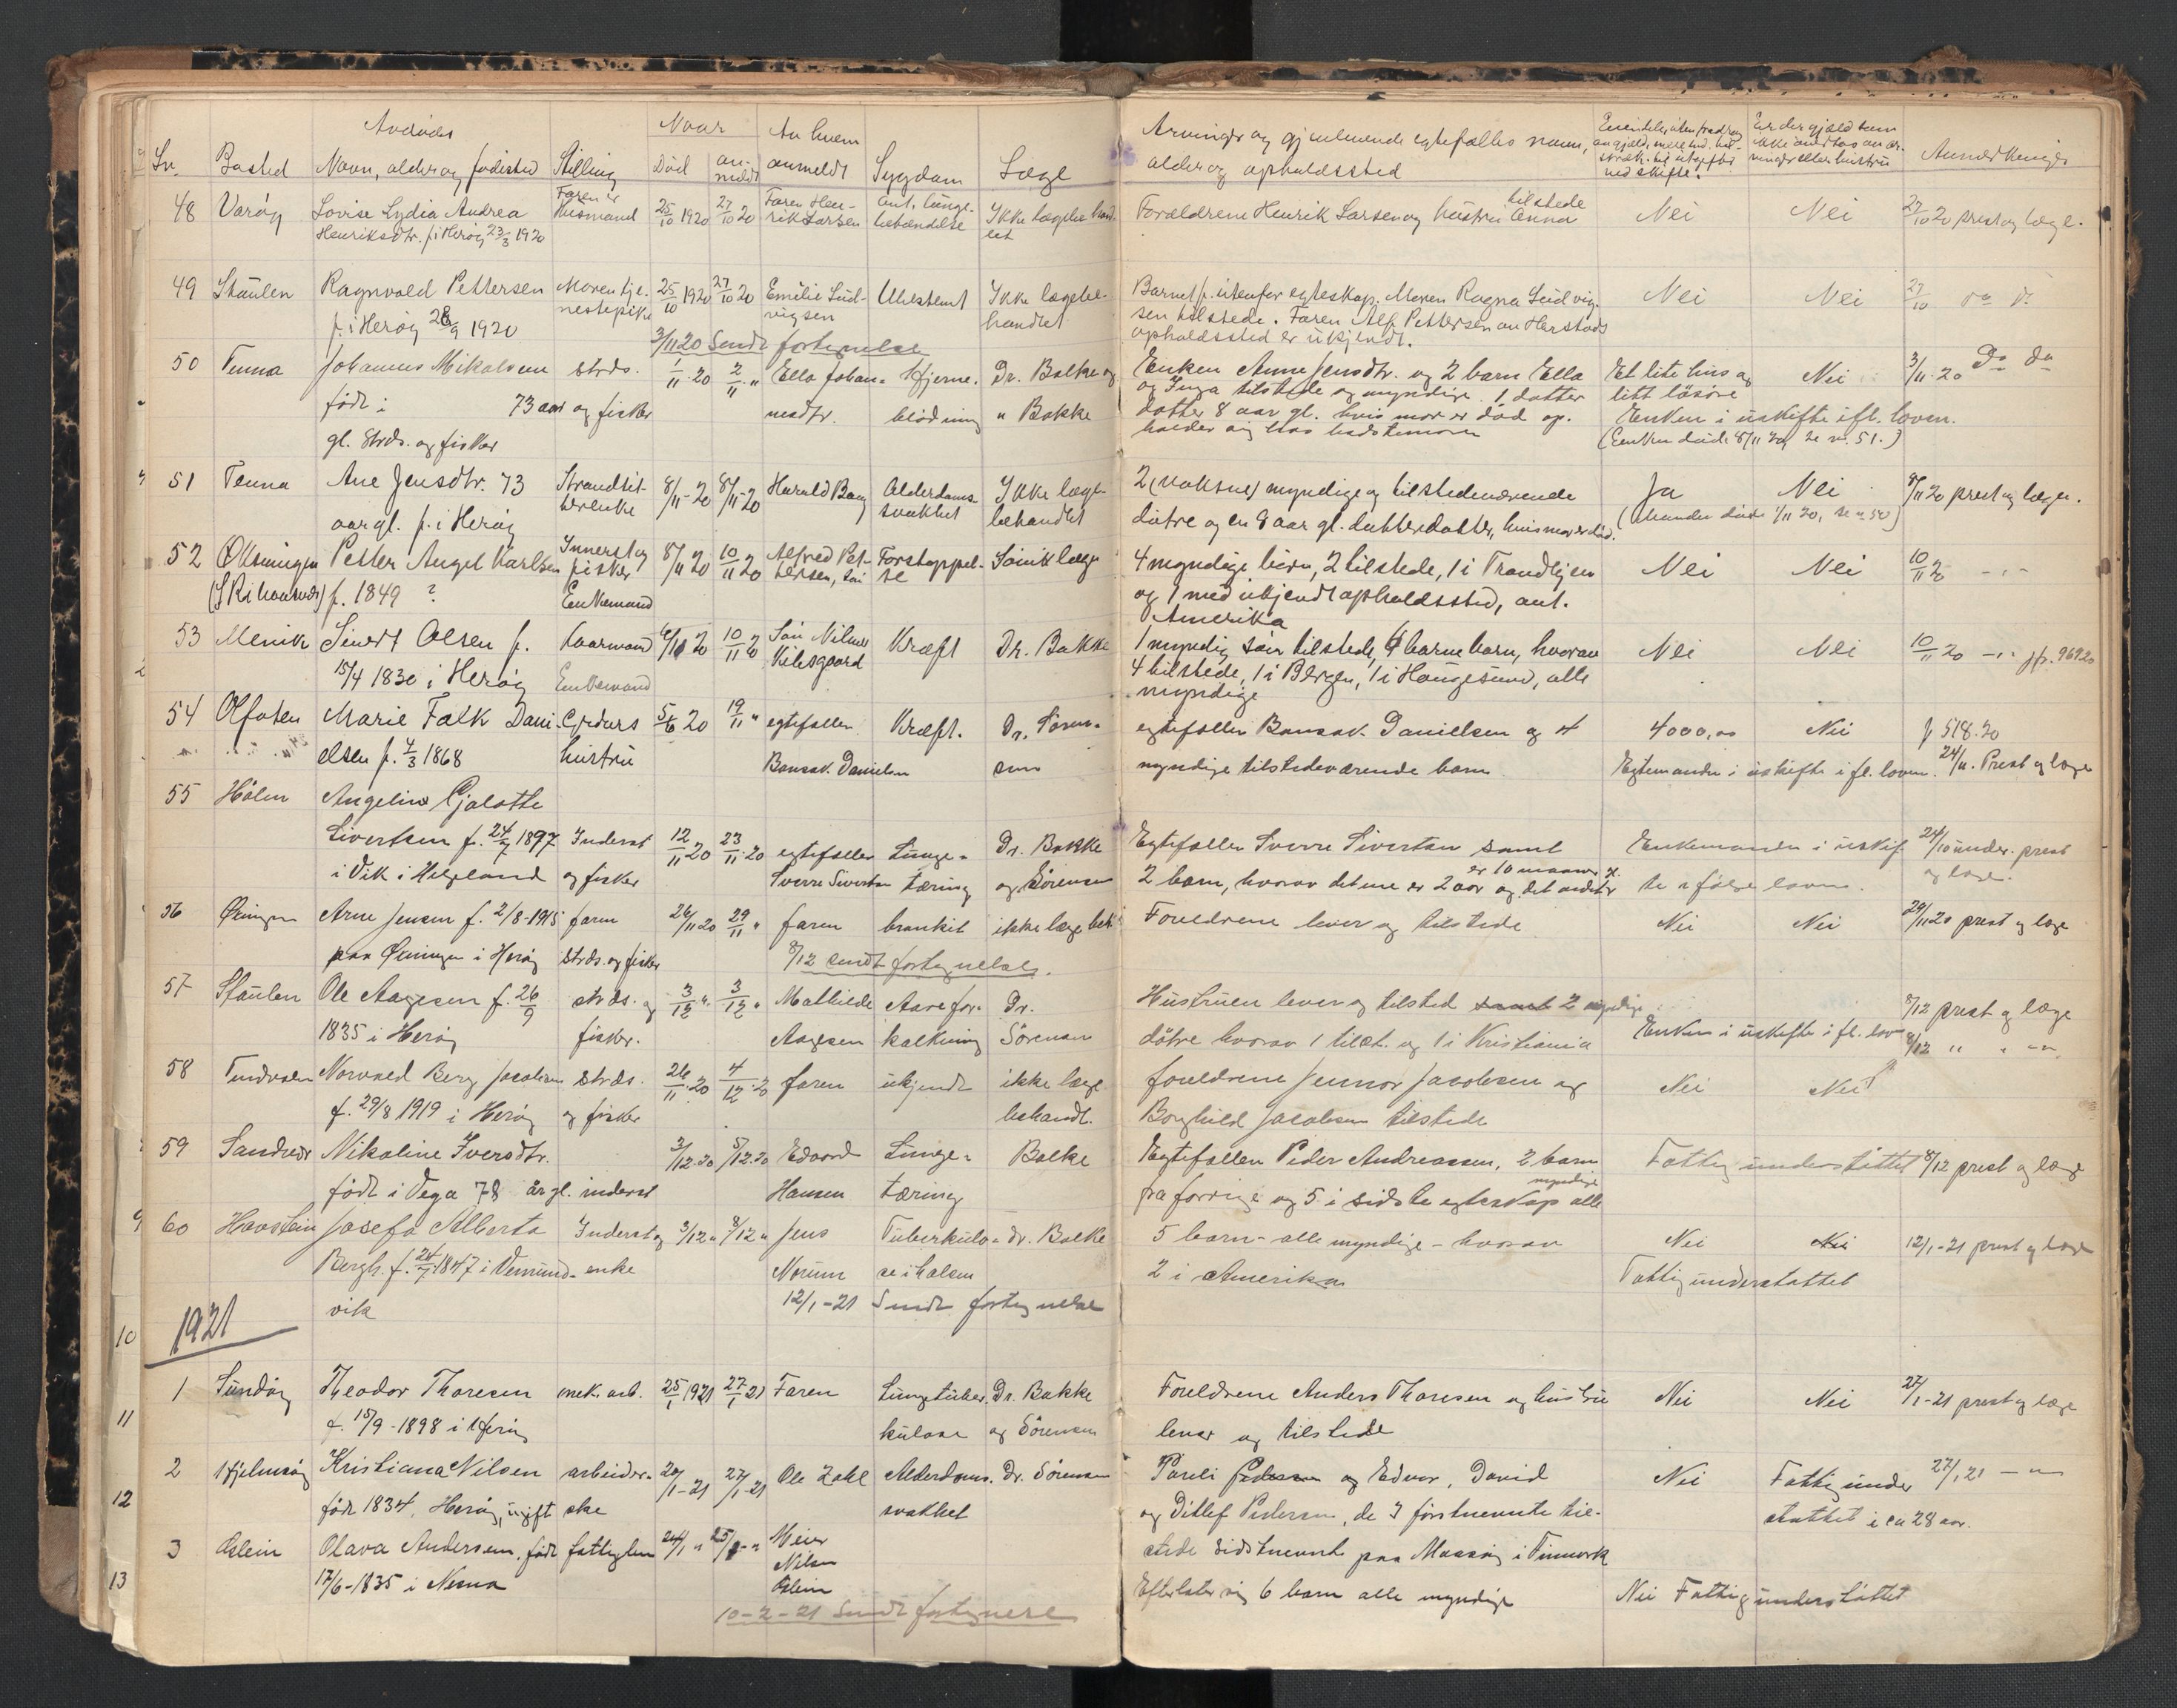 Avdødes
Naar
Av hvem
anmeldt
Lnr. Bosted Navn, alder og fødested Stilling Død an-
meldt Sygdom Læge
Arvinger og gjenlevende egtefælles navn,
alder og opholdssted
Er der gjæld som
ikke overtas av ar-
vinger eller hustru
Anmerkninger
48 Varøy Lovise Lydia Andrea
Henriksdtr. f. i Herøy 23/3 1920
Faren er
husmand
25/10 1920 27/10 20 Faren Hen-
rik Larsen
Ant. lunge-
betændelse
Ikke lægebehand-
let
Forældrene Henrik Larsen og hustru Anna
tilstede
Nei Nei 27/10 20 prest og læge.
49 Staulen Ragnvald Pettersen
f. i Herøy 28/9 1920
Moren tje-
nestepike
25/10 1920 27/10 20 Emilie Lud-
vigsen
Ubestemt Ikke lægebe-
handlet
Barnet f. utenfor egteskap. Moren Ragna Ludvig-
sen tilstede. Faren Alf Pettersen av Herstads
opholdssted er ukjendt.
Nei Nei 27/10 do do
3/11 20 Sendt fortegnelse
50 Tenna Johannes Mikalsen
født i 73 aar
gl. Strds. og fisker
strds.
og fisker
1/11 20 2/11 " Ella Johan-
nesdtr.
Hjerne-
blødning
Dr. Balke og
" Bakke
Enken Anne Jensdtr. og 2 barn Ella
og Inga tilstede og myndige. 1 datter
datter 8 aar gl. hvis mor er død op-
holder sig hos bedstemoren
Et lite hus og
litt løsøre
Nei 3/11 20 Do do
Enken i uskifte ifl. loven.
(Enken død 8/11 20, se nr. 51.)
51 Tenna Ane Jensdtr. 73
aar gl. f. i Herøy
Strandsit-
terenke
8/11-20 8/11-20 Harald Bang Alderdoms-
svakhet
Ikke læge-
behandlet
2 (voksne) myndige og tilstedeværende
døtre og en 8 aar gl. datterdatter, hvis mor er død.
Ja Nei 8/11 20 prest og læge.
(Manden død 1/11 20, se nr. 50)
52 Øksningen Petter Angel Karlsen
f. 1849 ?
Innerst og
fisker
Enkemand
8/11 20 10/11 20 Alfred Pet-
tersen, søn
Forstoppel-
se
Sönik læge
4 myndige børn, 2 tilstede, 1 i Trondhjem
og 1 med ukjendt opholdssted, ant.
Amerika
Nei Nei 10/11 20 -"-
53 Menik Sivert Olsen f.
15/4 1830 i Herøy
kaarmand
Enkemand
10/11 20 Søn Nilmer
Vilesgaard
Kræft Dr. Bakke
1 myndig søn tilstede, 6 barnebarn, hvorav
4 tilstede, 1 i Bergen, 1 i Haugesund, alle
myndige
Nei Nei 10/11 20 -"- jfr. 969 20
54 Olfoten Marie Falk Dani-
elsen f. 4/3 1868
Gjrdbrs
hustru
5/6 20 19/11 " egtefællen
Bonsak Danielsen
Kræft. Dr. Sören-
sen
egtefællen Bonsak Danielsen og 4
myndige tilstedeværende barn
4000,00 Nei f 518.20
Egtemanden i uskifte ifl. loven. 24/11. Prest og læge
55 Hölen Angelina Gjalotte
Sivertsen f. 24/7 1897
i Vik i Helgeland
Inderst
og fisker
12/11 20 23/11 20 egtefællen
Sverre Sivertsen
Lunge-
tæring
Dr. Bakke
og Sørensen
Egtefællen Sverre Sivertsen samt
2 barn, hvorav det ene er 2 aar og det andet
er 10 maaner gl.
Enkemanden i uskif-
te ifølge loven.
24/11 under. prest
og læge.
56 Øxningen Arne Jensen f. 2/8-1915
paa Øxningen i Herøy
faren
strds. og fisker
26/11 20 29/11 " faren bronkit ikke læge beh.
Foreldrene lever og tilstede
Nei Nei 29/11 20 prest og læge
8/12 sendt fortegnelse.
57 Staulen Ole Aagesen f. 26/9
1835 i Herøy
strds. og
fisker.
3/12 " 3/12 " Mathilde
Aagesen
Aarefor-
kalkning
Dr.
Sörensen
Hustruen lever og tilsted samt 2 myndige
døtre hvorav 1 tilst. og 1 i Kristiania
Enken i uskifte ifl. loven
8/12 prest og læge
58 Tenvalen Norvald Berg Jacobsen
f. 29/8 1919 i Herøy
strds.
og fisker
26/11 20 4/12 20 faren ukjendt ikke læge
behandl.
foreldrene Jennor Jacobsen og
Borghild Jacobsen tilstede
Nei Nei 8/12 " " -"-
59 Sandvær Nikoline Iversdtr.
født i Vega 78 år gl. inderst
3/12.20 5/12.20 Edvard
Hansen
Lunge-
tæring
Balke
Egtefællen Peder Andreassen, 2 barn
fra forrige og 5 i sidste egteskap alle
myndige
Fattigunderstøttet 8/12 prest og læge
60 Havstein Josefa Alberta
Bergh. f. 24/7 1847 i Vemund-
vik
Inderst og
enke
3/12 " 8/12 " Jens
Norum
Tuberkulo-
se i halsen
dr. Balke
5 barn - alle myndige - hvorav
2 i Amerika
Nei Nei 12/1-21 prest og læge
Fattigunderstøttet
12/1-21 Sendt fortegnelse
1921
1 Sundöy Theodor Thoresen
f. 15/9-1898 i Herøy
mek. arb. 25/1 1921 27/1 21 Faren Lungetuber-
kulose
Dr. Bakke
og Sörensen
Foreldrene Anders Thoresen og hustru
lever og tilstede
Nei Nei 27/1-21 prest og læge
2 Hjelmsøy Kristiana Nilsen
født 1834, Herøy, ugift
arbeider-
ske
20/1-21 27/1-21 Ole Zahl Alderdoms-
svakhet
Dr. Sörensen
Pareli Pedersen og Edvar, David
og Ditlef Pedersen, de 3 førstnevnte til-
stede sidstnevnt paa Maasöy i Finmark
Nei Fattigunder-
støttet i ca 28 aar.
27/1 21 -"-
3 Aslein Olava Andersen, født
17/6-1835 i Nesna
fattiglem 24/1 " 25/1-" Meier
Nilsen
Aslein
Efterlater sig 6 barn alle myndige
Nei Fattigunderstøttet
10-2-21 Sendt fortegnelse
10
11
12
13